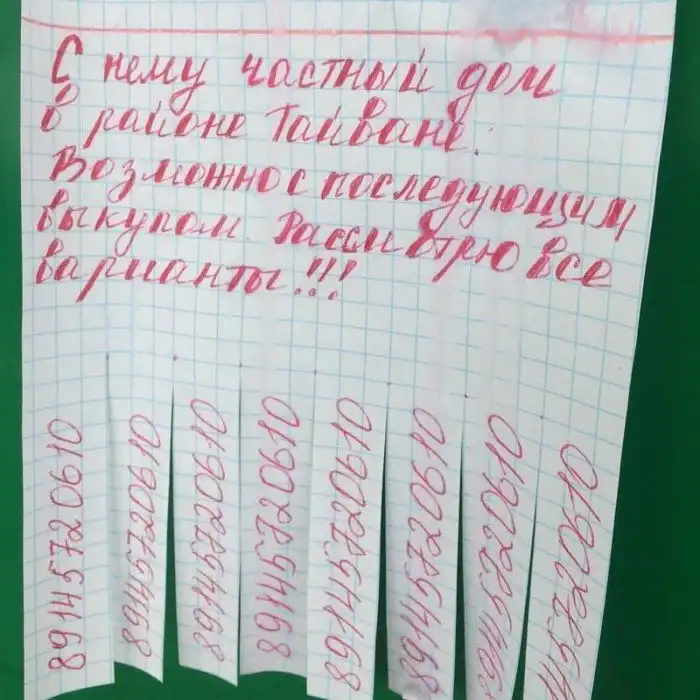 С нему частный дом
в районе Тайване.
Возможно с последующим
выкупом. Рассмотрю все
варианты!!!
89145720610
89145720610
89145720610
89145720610
89145720610
89145720610
9145720610
45720610